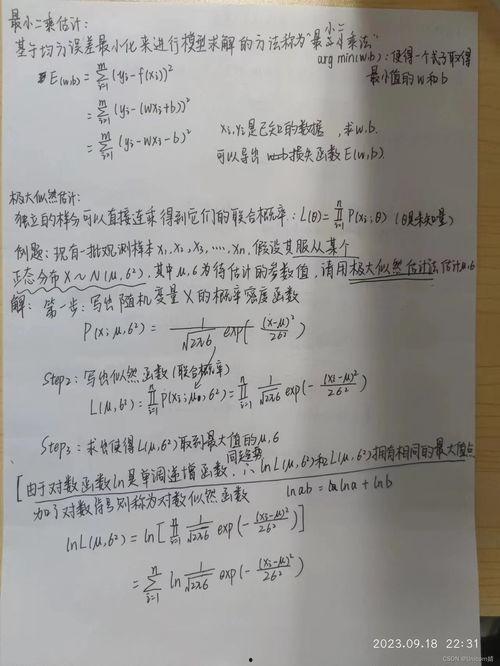 最小二乘估计:
基于均方误差最小化来进行模型求解的方法称为"最小二乘法"
arg min(w,b): 使得一个式子取得
最小值的w和b
E(w,b) = ∑_{i=1}^{m} (y_i - f(x_i))²
= ∑_{i=1}^{m} (y_i - (wx_i+b))²
= ∑_{i=1}^{m} (y_i - wx_i - b)²
x_i, y_i是已知的数据, 求w,b.
可以导出 损失函数E(w,b).
极大似然估计:
独立的样本可以直接连乘得到它们的联合概率: L(θ) = ∏_{i=1}^{n} P(x_i;θ) (θ是未知量)
例题: 现有一批观测样本x₁, x₂, x₃, ...., x_n, 假设其服从某个
正态分布X~N(μ,6²), 其中μ,6为待估计的参数值, 请用极大似然估计法估计μ,6
解: 第一步: 写出随机变量X的概率密度函数
P(x;μ,6²) = 1/√2π6 exp(-(x-μ)²/26²)
Step2: 写出似然函数(联合概率)
L(μ,6²) = ∏_{i=1}^{n} P(x_i;μ,6²) = ∏_{i=1}^{n} 1/√2π6 exp(-(x_i-μ)²/26²)
Step3: 求出使得L(μ,6²)取到最大值的μ,6
[由于对数函数ln是单调递增函数, ∴ lnL(μ,6²)和L(μ,6²)拥有相同的最大值点
加了对数符号则称为对数似然函数 lnab = lna + lnb
lnL(μ,6²) = ln[∏_{i=1}^{n} 1/√2π6 exp(-(x_i-μ)²/26²)]
= ∑_{i=1}^{n} ln 1/√2π6 exp(-(x_i-μ)²/26²)
2023.09.18 22:31